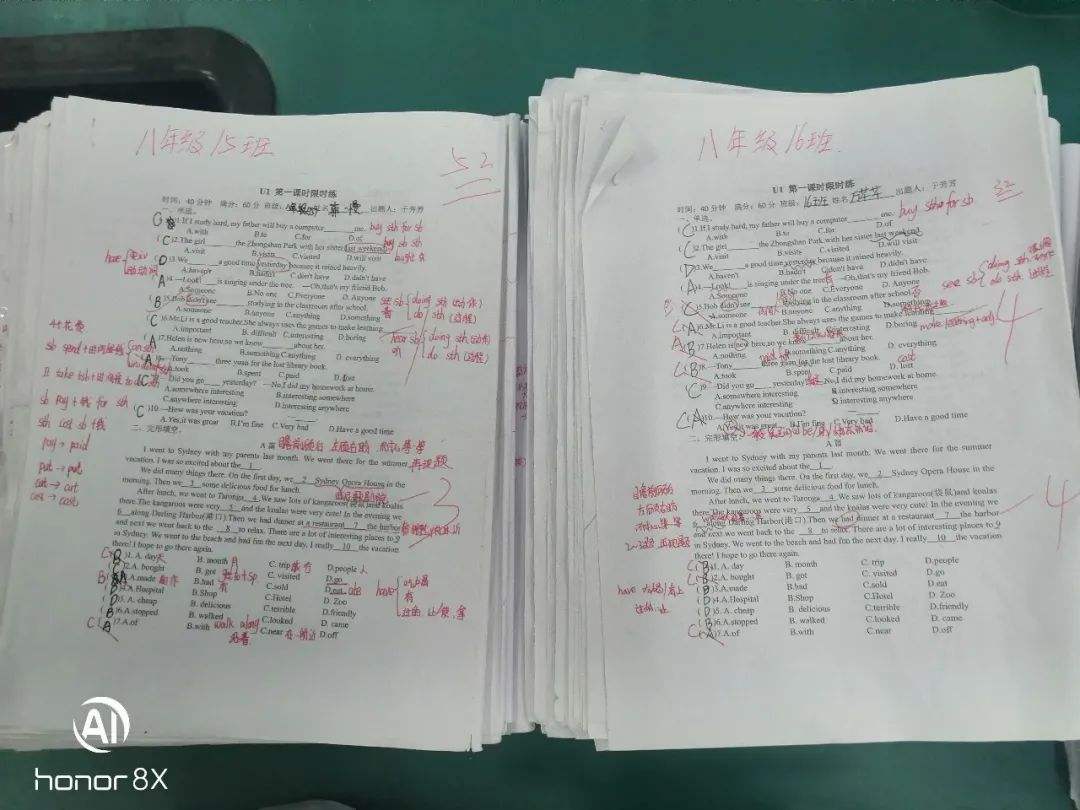 八年级15班
52
U1 第一课时限时练
时间：40分钟 满分：60分 班级： 姓名 出题人：于芳芳
一、单选。
(C)1.If I study hard, my father will buy a computer ______ me. buy sth for sb
A.with B.to C.for D.of buy sb sth
(C)2.The girl ______ the Zhongshan Park with her sister last weekend.
A.visit B.visits C.visited D.will visit
(D)3.We ______ a good time yesterday because it rained heavily.
A.haven't B.hadn't C.don't have D.didn't have
(A)4.—Look! ______ is singing under the tree. —Oh,that's my friend Bob.
A.Someone B.No one C.Everyone D. Anyone
(B)5.Bob didn't see ______ studying in the classroom after school.
A.someone B.anyone C.anything D.something
(C)6.Mr.Li is a good teacher.She always uses the games to make learning ______
A.important B. difficult C.interesting D.boring
(A)7.Helen is new here,so we know ______ about her.
A.nothing B.something C.anything D. everything
8.—Tony ______ three yuan for the lost library book.
A.took B.spent C.paid D. cost
(C)9.—Did you go ______ yesterday? —No,I did my homework at home.
A.somewhere interesting B.interesting somewhere
C.anywhere interesting D.interesting anywhere
(C)10.—How was your vacation? ______
A.Yes,it was great B.I'm fine C.Very bad D.Have a good time
4个花费
sb spend+时间/金钱
It take sb+时间段 to do
sb pay+钱 for sth
sth cost sb 钱
pay → paid
put → put
cut → cut
cost → cost
see sb doing sth
do sth
hear sb doing sth
do sth
二、完形填空。
A 篇
I went to Sydney with my parents last month. We went there for the summer
vacation. I was so excited about the 1 .
We did many things there. On the first day, we 2 Sydney Opera House in the
morning. Then we 3 some delicious food for lunch.
After lunch, we went to Taronga 4 .We saw lots of kangaroos(袋鼠)and koalas
there.The kangaroos were very 5 and the koalas were very cute! In the evening we
6 along Darling Harbor(港口).Then we had dinner at a restaurant 7 the harbor
and next we went back to the 8 to relax. There are a lot of interesting places to 9
in Sydney. We went to the beach and had fun the next day. I really 10 the vacation
there! I hope to go there again.
3
1. A. day天 B. month 月 C. trip旅行 D.people 人
2.A. bought B. got C. visited D.go
3.A.made B.had C.sold D.eat ate
4.A.Hospital B.Shop C.Hotel D. Zoo
5. A. cheap B. delicious C.terrible D.friendly
6.A.stopped B. walked C.looked D. came
7.A.of B.with C.near D.off
walk along
沿着
八年级16班
52
U1 第一课时限时练
时间：40分钟 满分：60分 班级：16班 姓名 出题人：于芳芳
一、单选。
(C)1.If I study hard, my father will buy a computer ______ me. buy sth for sb
A.with B.to C.for D.of
(C)2.The girl ______ the Zhongshan Park with her sister last weekend.
A.visit B.visits C.visited D.will visit
(D)3.We ______ a good time yesterday because it rained heavily.
A.haven't B.hadn't C.don't have D.didn't have
(A)4.—Look! ______ is singing under the tree. —Oh,that's my friend Bob.
A.Someone B.No one C.Everyone D. Anyone
5.Bob didn't see ______ studying in the classroom after school.
A.someone B.anyone C.anything D.something
6.Mr.Li is a good teacher.She always uses the games to make learning ______
A.important B. difficult C.interesting D.boring
7.Helen is new here,so we know ______ about her.
A.nothing B.something C.anything D. everything
8.—Tony ______ three yuan for the lost library book.
A.took B.spent C.paid D. cost
9.—Did you go ______ yesterday? —No,I did my homework at home.
A.somewhere interesting B.interesting somewhere
C.anywhere interesting D.interesting anywhere
10.—How was your vacation? ______
A.Yes,it was great B.I'm fine C.Very bad D.Have a good time
see sb doing sth
do sth
4
二、完形填空。
A 篇
I went to Sydney with my parents last month. We went there for the summer
vacation. I was so excited about the 1 .
We did many things there. On the first day, we 2 Sydney Opera House in the
morning. Then we 3 some delicious food for lunch.
After lunch, we went to Taronga 4 .We saw lots of kangaroos(袋鼠)and koalas
there.The kangaroos were very 5 and the koalas were very cute! In the evening we
6 along Darling Harbor(港口).Then we had dinner at a restaurant 7 the harbor
and next we went back to the 8 to relax. There are a lot of interesting places to 9
in Sydney. We went to the beach and had fun the next day. I really 10 the vacation
there! I hope to go there again.
4
1. A. day B. month C. trip D.people
2.A. bought B. got C. visited D.go
3.A.made B.had C.sold D.eat
4.A.Hospital B.Shop C.Hotel D. Zoo
5. A. cheap B. delicious C.terrible D.friendly
6.A.stopped B. walked C.looked D. came
7.A.of B.with C.near D.off
AI
honor 8X